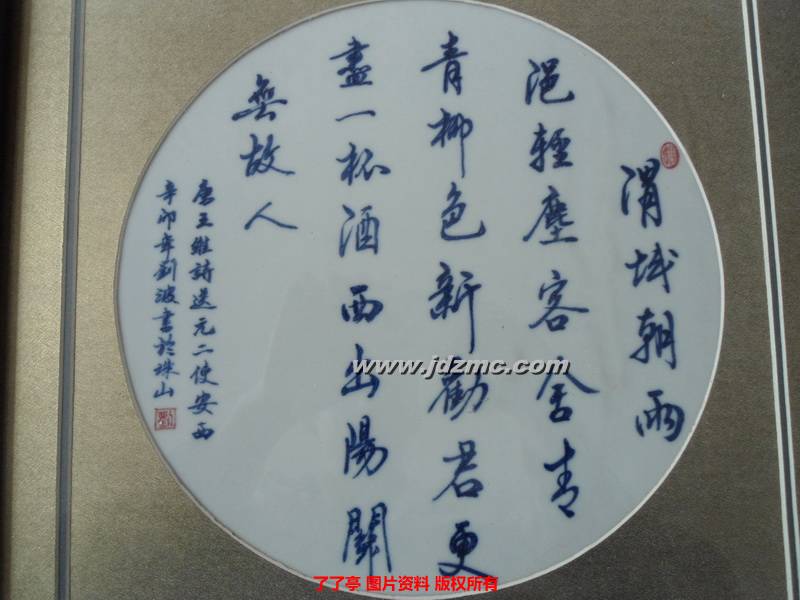 渭城朝雨
浥輕塵客舍青
青柳色新勸君更
盡一杯酒西出陽關
無故人
唐王維詩送元二使安西
辛卯年劉波書於珠山
www.jdzmc.com
了了亭 图片资料 版权所有